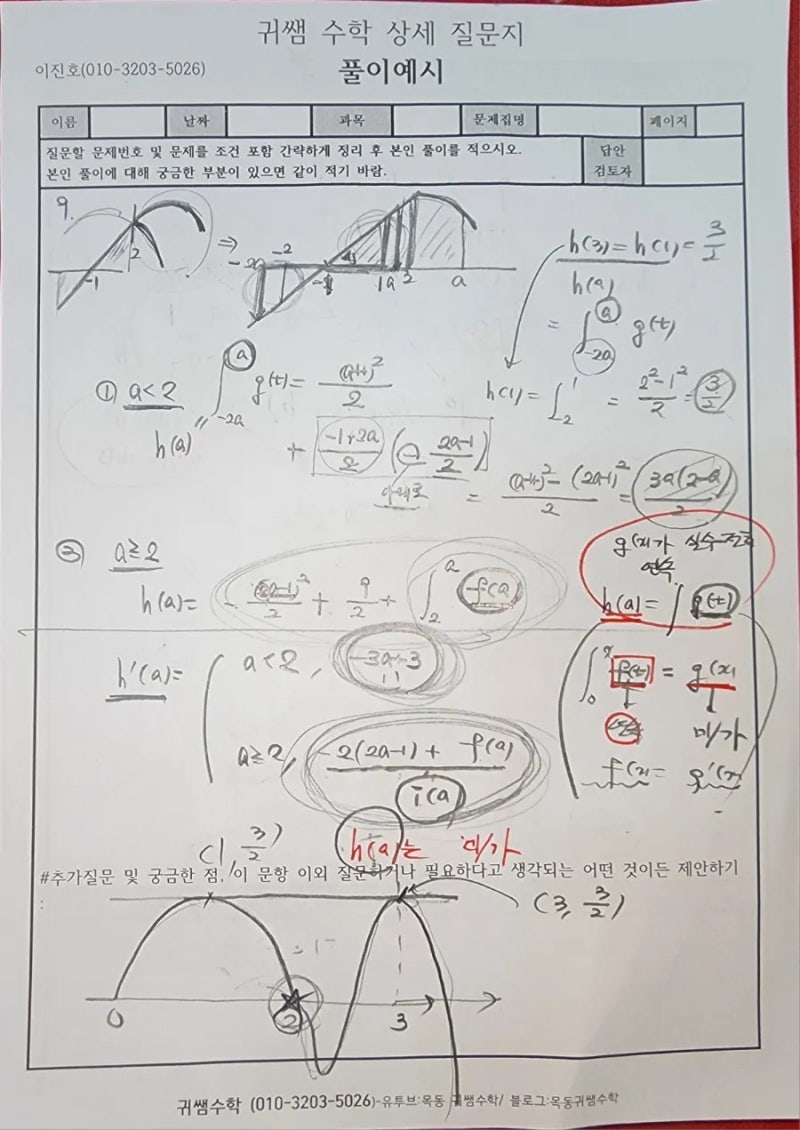 귀쌤 수학 상세 질문지
이진호(010-3203-5026)
풀이예시
이름 날짜 과목 문제집명 페이지
질문할 문제번호 및 문제를 조건 포함 간략하게 정리 후 본인 풀이를 적으시오.
본인 풀이에 대해 궁금한 부분이 있으면 같이 적기 바람.
답안
검토자
9.
-1 2
⇒
-2a -2 -1 1 a 2 a
h(3) = h(1) = 3/2
h(a)
= ∫_{-2a}^{a} g(t)
① a<2 ∫_{-2a}^{a} g(t) = (a+1)²/2
h(a)
h(1) = ∫_{-2}^{1} = (2²-1²)/2 = 3/2
+ (-1+2a)/2 (- (2a-1)/2)
아래로
= ((a+1)² - (2a-1)²)/2 = 3a(2-a)/2
② a≥2
h(a) = -(2a-1)²/2 + 9/2 + ∫_{2}^{a} f(a)
g(x)가 실수전체
연속
h(a) = ∫ g(t)
h'(a) = a<2, -3a+3
∫_{0}^{x} f(t) = g(x)
연속 미/가
a≥2, -2(2a-1) + f(a)
i(a)
f(x) = g'(x)
(1, 3/2)
h(a)는 미/가
#추가질문 및 궁금한 점, 이 문항 이외 질문하거나 필요하다고 생각되는 어떤 것이든 제안하기
:
(3, 3/2)
0 2 3
귀쌤수학 (010-3203-5026)-유투브:목동 귀쌤수학/ 블로그:목동귀쌤수학